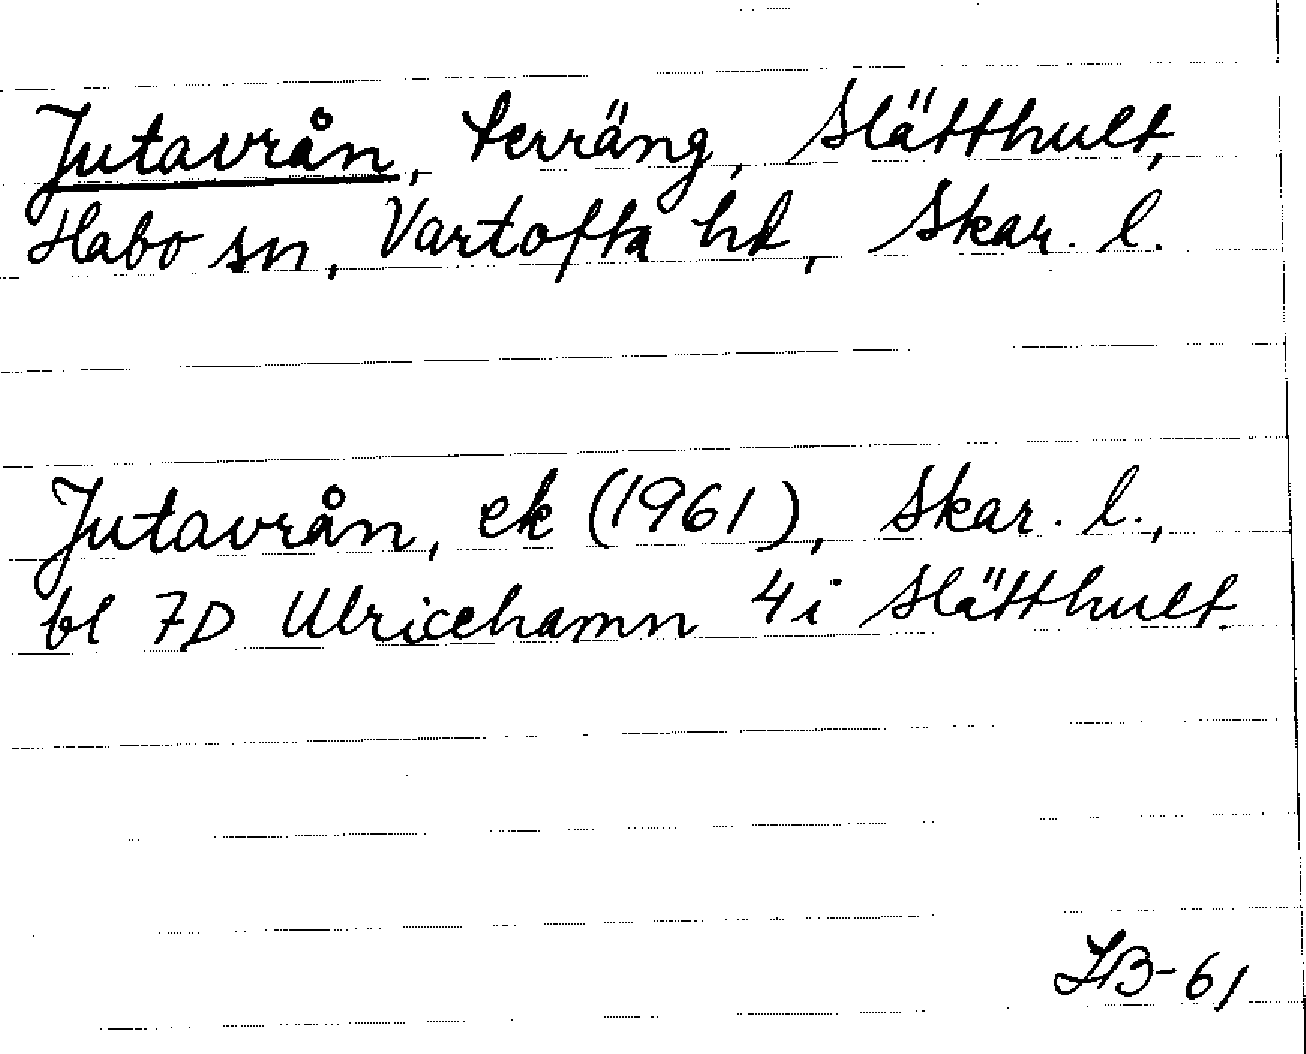 Jutavrån, terräng, Slätthult,
Habo sn, Vartofta hd, Skar. l.
Jutavrån, ek (1961), Skar. l.,
bl 7D Ulricehamn 4i Slätthult.
LB-61